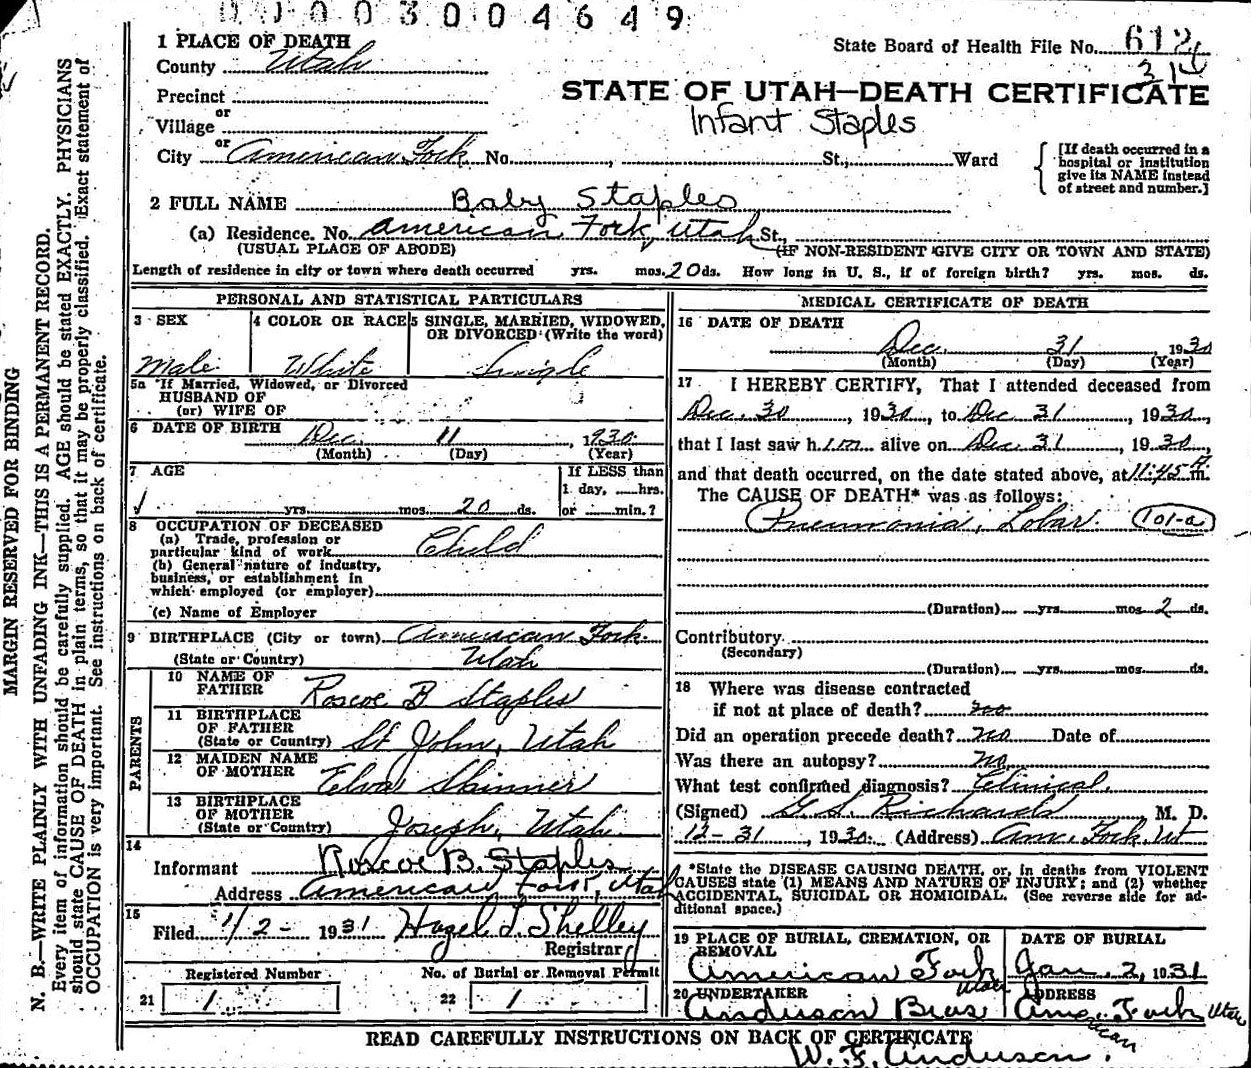 003004649
1 PLACE OF DEATH
State Board of Health File No. 612
County Utah
314
Precinct
STATE OF UTAH—DEATH CERTIFICATE
or
Village
Infant Staples
or
City American Fork No. , St., Ward
[If death occurred in a hospital or institution give its NAME instead of street and number.]
2 FULL NAME Baby Staples
(a) Residence. No. American Fork, Utah St.
(USUAL PLACE OF ABODE) (IF NON-RESIDENT GIVE CITY OR TOWN AND STATE)
Length of residence in city or town where death occurred yrs. mos. 20 ds. How long in U. S., if of foreign birth? yrs. mos. ds.
PERSONAL AND STATISTICAL PARTICULARS
3 SEX 4 COLOR OR RACE 5 SINGLE, MARRIED, WIDOWED,
OR DIVORCED (Write the word)
Male White Single
5a If Married, Widowed, or Divorced
HUSBAND OF
(or) WIFE OF
6 DATE OF BIRTH Dec. 11, 1930
(Month) (Day) (Year)
7 AGE If LESS than
1 day, hrs.
yrs. mos. 20 ds. or min.?
8 OCCUPATION OF DECEASED
(a) Trade, profession or
particular kind of work Child
(b) General nature of industry,
business, or establishment in
which employed (or employer)
(c) Name of Employer
9 BIRTHPLACE (City or town) American Fork
(State or Country) Utah
PARENTS
10 NAME OF
FATHER Roscoe B Staples
11 BIRTHPLACE
OF FATHER
(State or Country) St John, Utah
12 MAIDEN NAME
OF MOTHER Elva Skinner
13 BIRTHPLACE
OF MOTHER
(State or Country) Joseph, Utah
14
Informant Roscoe B. Staples
Address American Fork, Utah
15
Filed 1/2 - 1931 Hazel L. Shelley
Registrar
Registered Number No. of Burial or Removal Permit
21 1 22 1
MEDICAL CERTIFICATE OF DEATH
16 DATE OF DEATH
Dec. 31 1930
(Month) (Day) (Year)
17 I HEREBY CERTIFY, That I attended deceased from
Dec. 30, 1930, to Dec 31, 1930,
that I last saw h im alive on Dec 31, 1930,
and that death occurred, on the date stated above, at 11:45 m.
The CAUSE OF DEATH* was as follows:
Pneumonia, Lobar. 101-a
(Duration) yrs. mos 2 ds.
Contributory
(Secondary)
(Duration) yrs. mos. ds.
18 Where was disease contracted
if not at place of death? no
Did an operation precede death? no Date of
Was there an autopsy? no
What test confirmed diagnosis? Clinical.
(Signed) G. S. Richards M. D.
12-31, 1930 (Address) Am. Fork, Ut
*State the DISEASE CAUSING DEATH, or, in deaths from VIOLENT
CAUSES state (1) MEANS AND NATURE OF INJURY; and (2) whether
ACCIDENTAL, SUICIDAL OR HOMICIDAL. (See reverse side for ad-
ditional space.)
19 PLACE OF BURIAL, CREMATION, OR DATE OF BURIAL
REMOVAL
American Fork Utah Jan. 2, 1931
20 UNDERTAKER ADDRESS
Anderson Bros American Fork Utah
READ CAREFULLY INSTRUCTIONS ON BACK OF CERTIFICATE
W. F. Anderson.
MARGIN RESERVED FOR BINDING
N. B.—WRITE PLAINLY WITH UNFADING INK—THIS IS A PERMANENT RECORD.
Every item of information should be carefully supplied. AGE should be stated EXACTLY. PHYSICIANS
should state CAUSE OF DEATH in plain terms, so that it may be properly classified. Exact statement of
OCCUPATION is very important. See instructions on back of certificate.